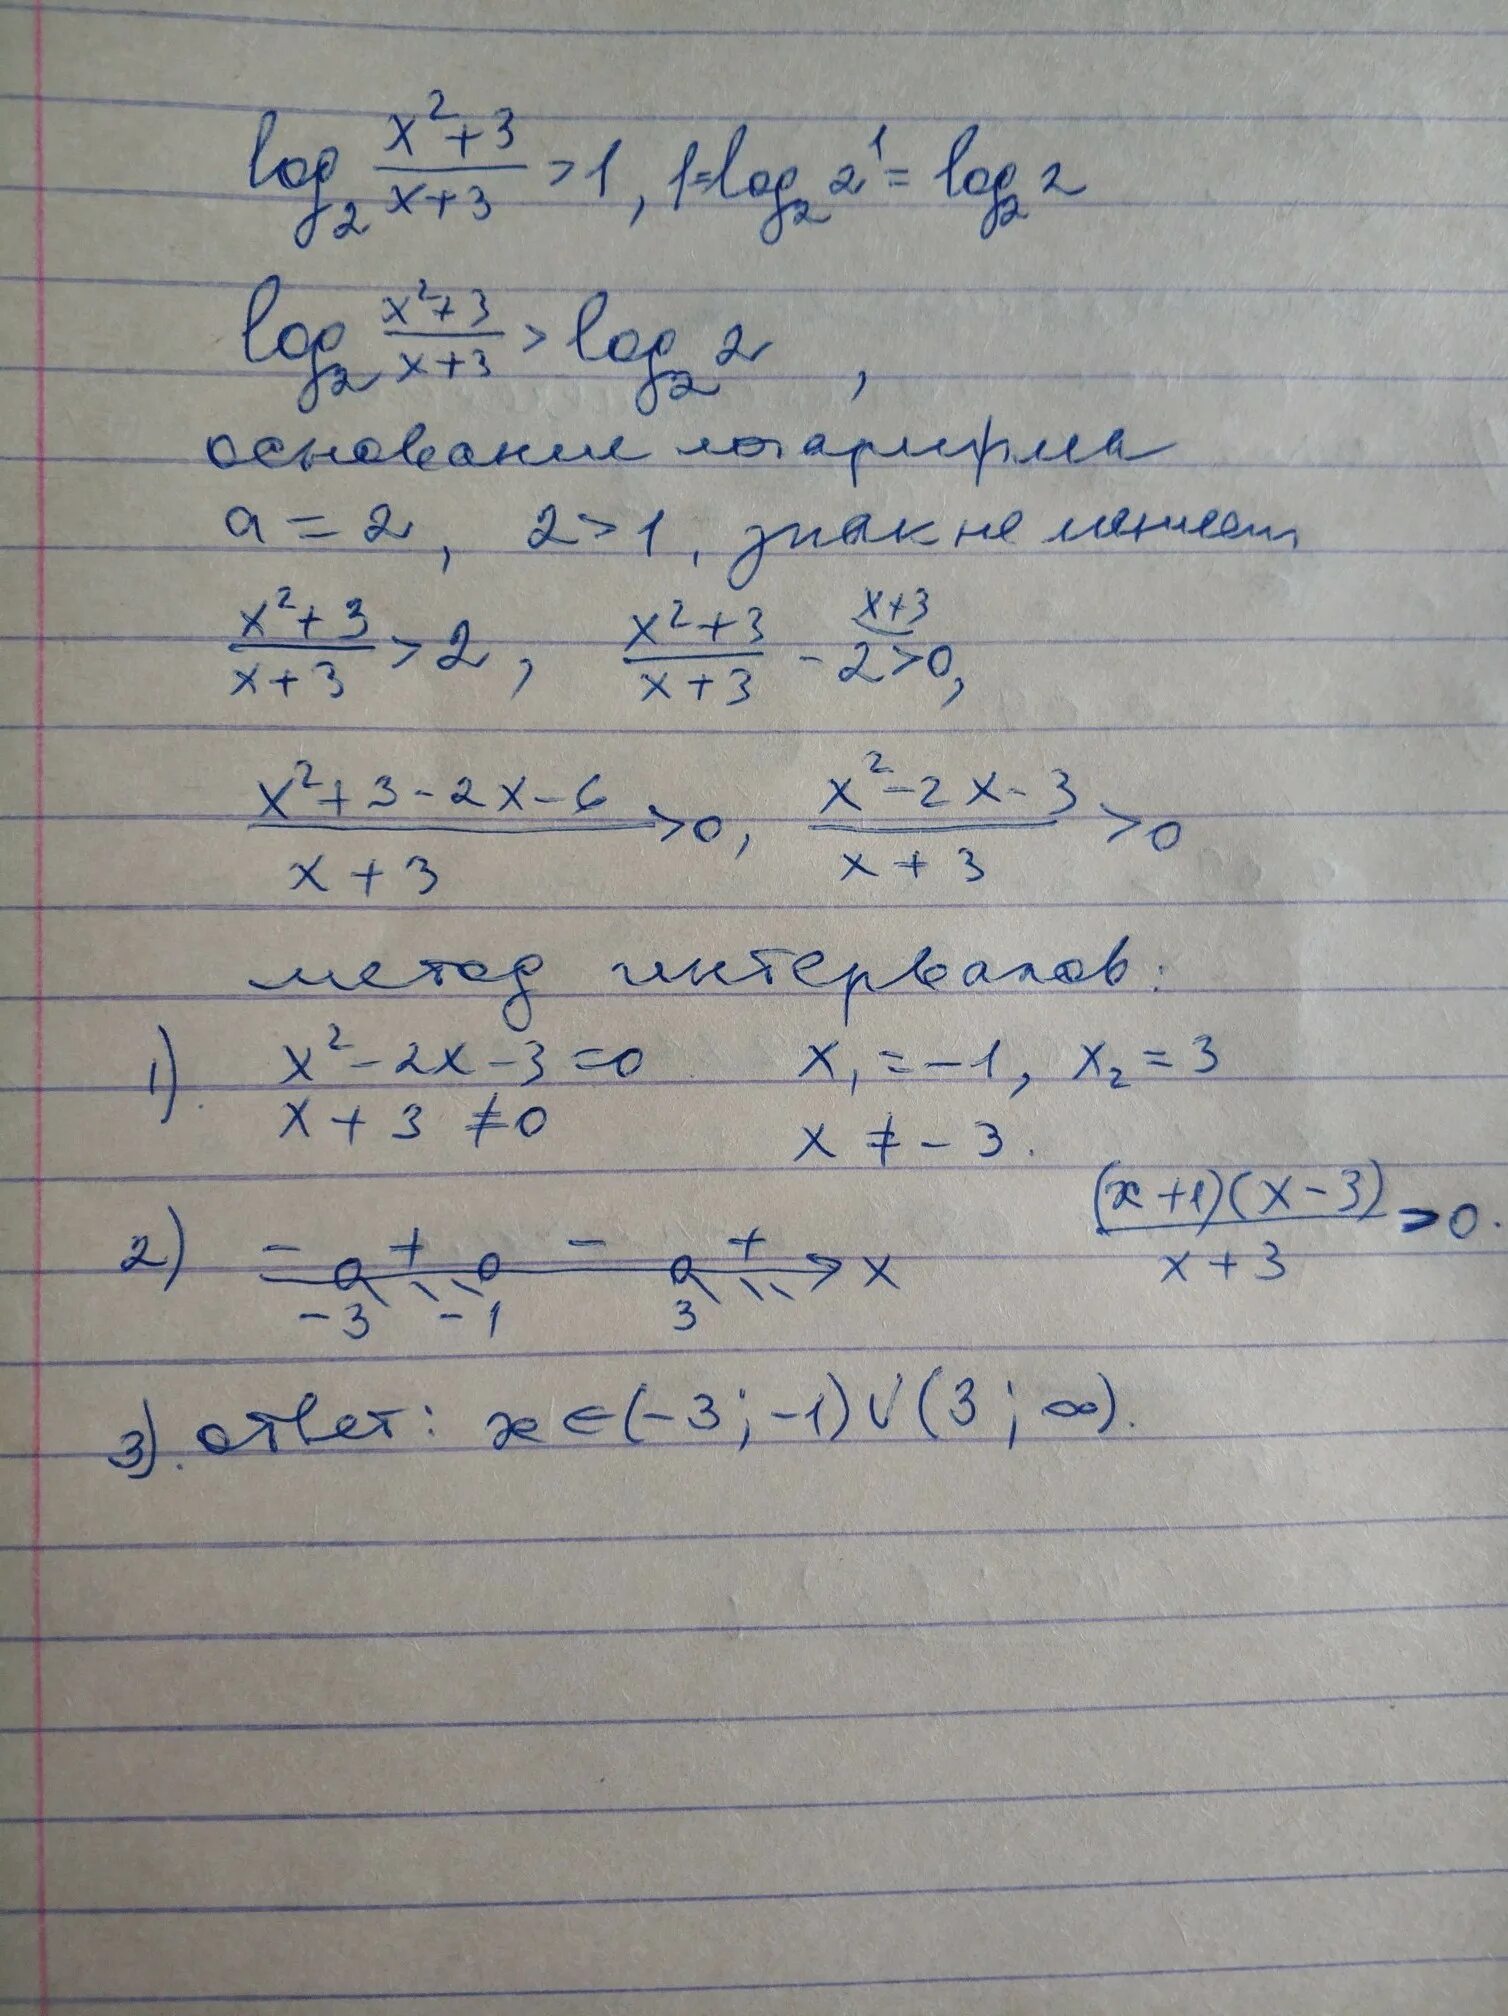 log₂ (x²+3)/(x+3) > 1, 1=log₂ 2¹ = log₂ 2
log₂ (x²+3)/(x+3) > log₂ 2,
основание логарифма
a = 2, 2 > 1, знак не меняем
(x²+3)/(x+3) > 2, (x²+3)/(x+3) - 2 > 0, x+3
(x²+3-2x-6)/(x+3) > 0, (x²-2x-3)/(x+3) > 0
метод интервалов:
1). x²-2x-3=0 x₁=-1, x₂=3
x+3≠0 x≠-3.
(x+1)(x-3)/(x+3) > 0.
2) - + - + x
-3 -1 3
3). ответ: x∈(-3;-1)∪(3;∞).